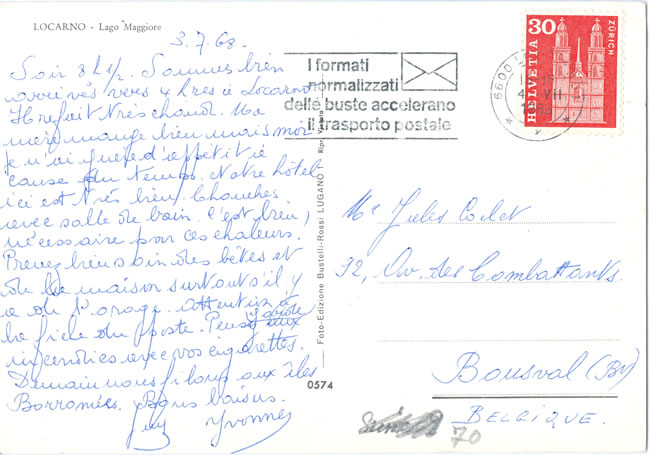 LOCARNO - Lago Maggiore
3.7.68.
Soir 8 h 1/2. Sommes bien
arrivés vers 4 hres à Locarno
Il refait très chaud. Ma
mère mange bien mais moi
je n'ai guère d'appétit à
cause du temps. Notre hôtel
ici est très bien. Chouches
avec salle de bain. C'est bien,
nécessaire pour ces chaleurs.
Prenez bien soin des bêtes et
de la maison surtout s'il y
a de l'orage. Attention à
la fiche du poste. Pensez aux
incendies avec vos cigarettes.
Demain nous filons aux îles
Borromées. Bons baisers.
Yvonne
I formati
normalizzati
delle buste accelerano
il trasporto postale
6600
30
HELVETIA
ZÜRICH
Foto-Edizione Bustelli-Rossi LUGANO
0574
Mr Jules
92, Av. des Combattants.
Bousval (Bt)
BELGIQUE.
70